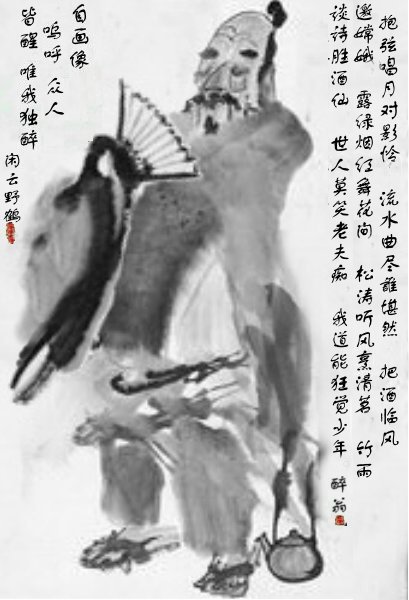 抱弦唱月对影怜 流水曲尽誰堪然 把酒临风
邀嫦娥 露绿烟红舞花间 松涛听风烹清茗 竹雨
谈诗胜酒仙 世人莫笑老夫痴 我道能狂觉少年 醉翁
自画像
呜呼 众人
皆醒 唯我独醉
闲云野鹤